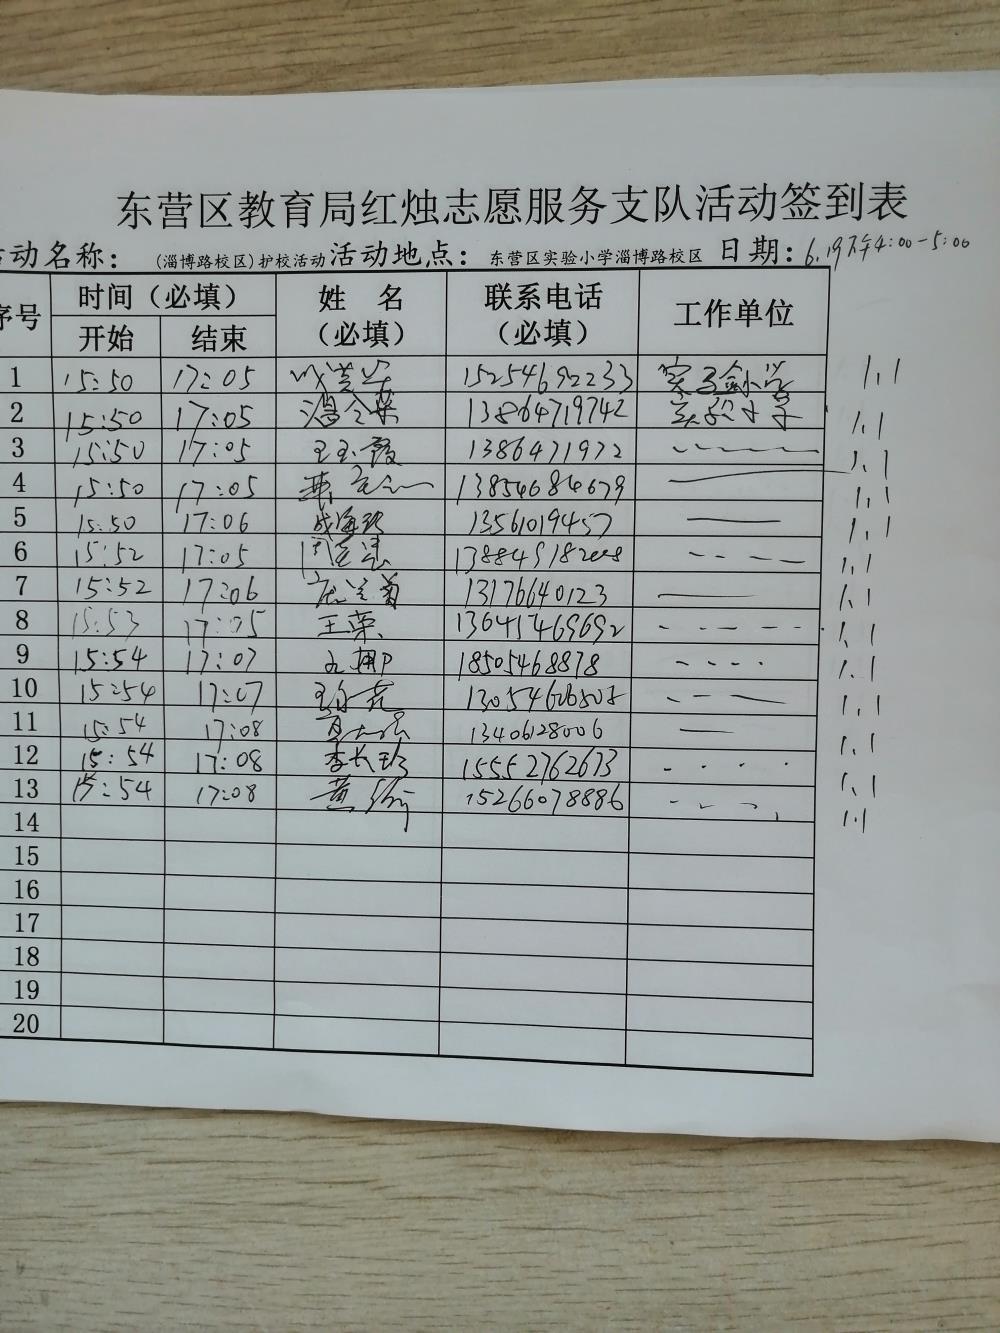 东营区教育局红烛志愿服务支队活动签到表
动名称： (淄博路校区)护校活动 活动地点： 东营区实验小学淄博路校区 日期：6.19下午4:00-5:00
序号 时间（必填） 姓 名（必填） 联系电话（必填） 工作单位
开始 结束
1 15:50 17:05 15254692233 实验小学 1.1
2 15:50 17:05 13864719742 实验小学 1.1
3 15:50 17:05 王玉霞 1386471972 1.1
4 15:50 17:05 13854684679 1.1
5 15:50 17:06 13561019457 1.1
6 15:52 17:05 1.1
7 15:52 17:06 13176640123 1.1
8 15:53 17:05 王荣 1.1
9 15:54 17:07 18505468878 1.1
10 15:54 17:07 1.1
11 15:54 17:08 13406128006 1.1
12 15:54 17:08 李长珍 15552762673 1.1
13 15:54 17:08 黄 15266078886 1.1
14
15
16
17
18
19
20